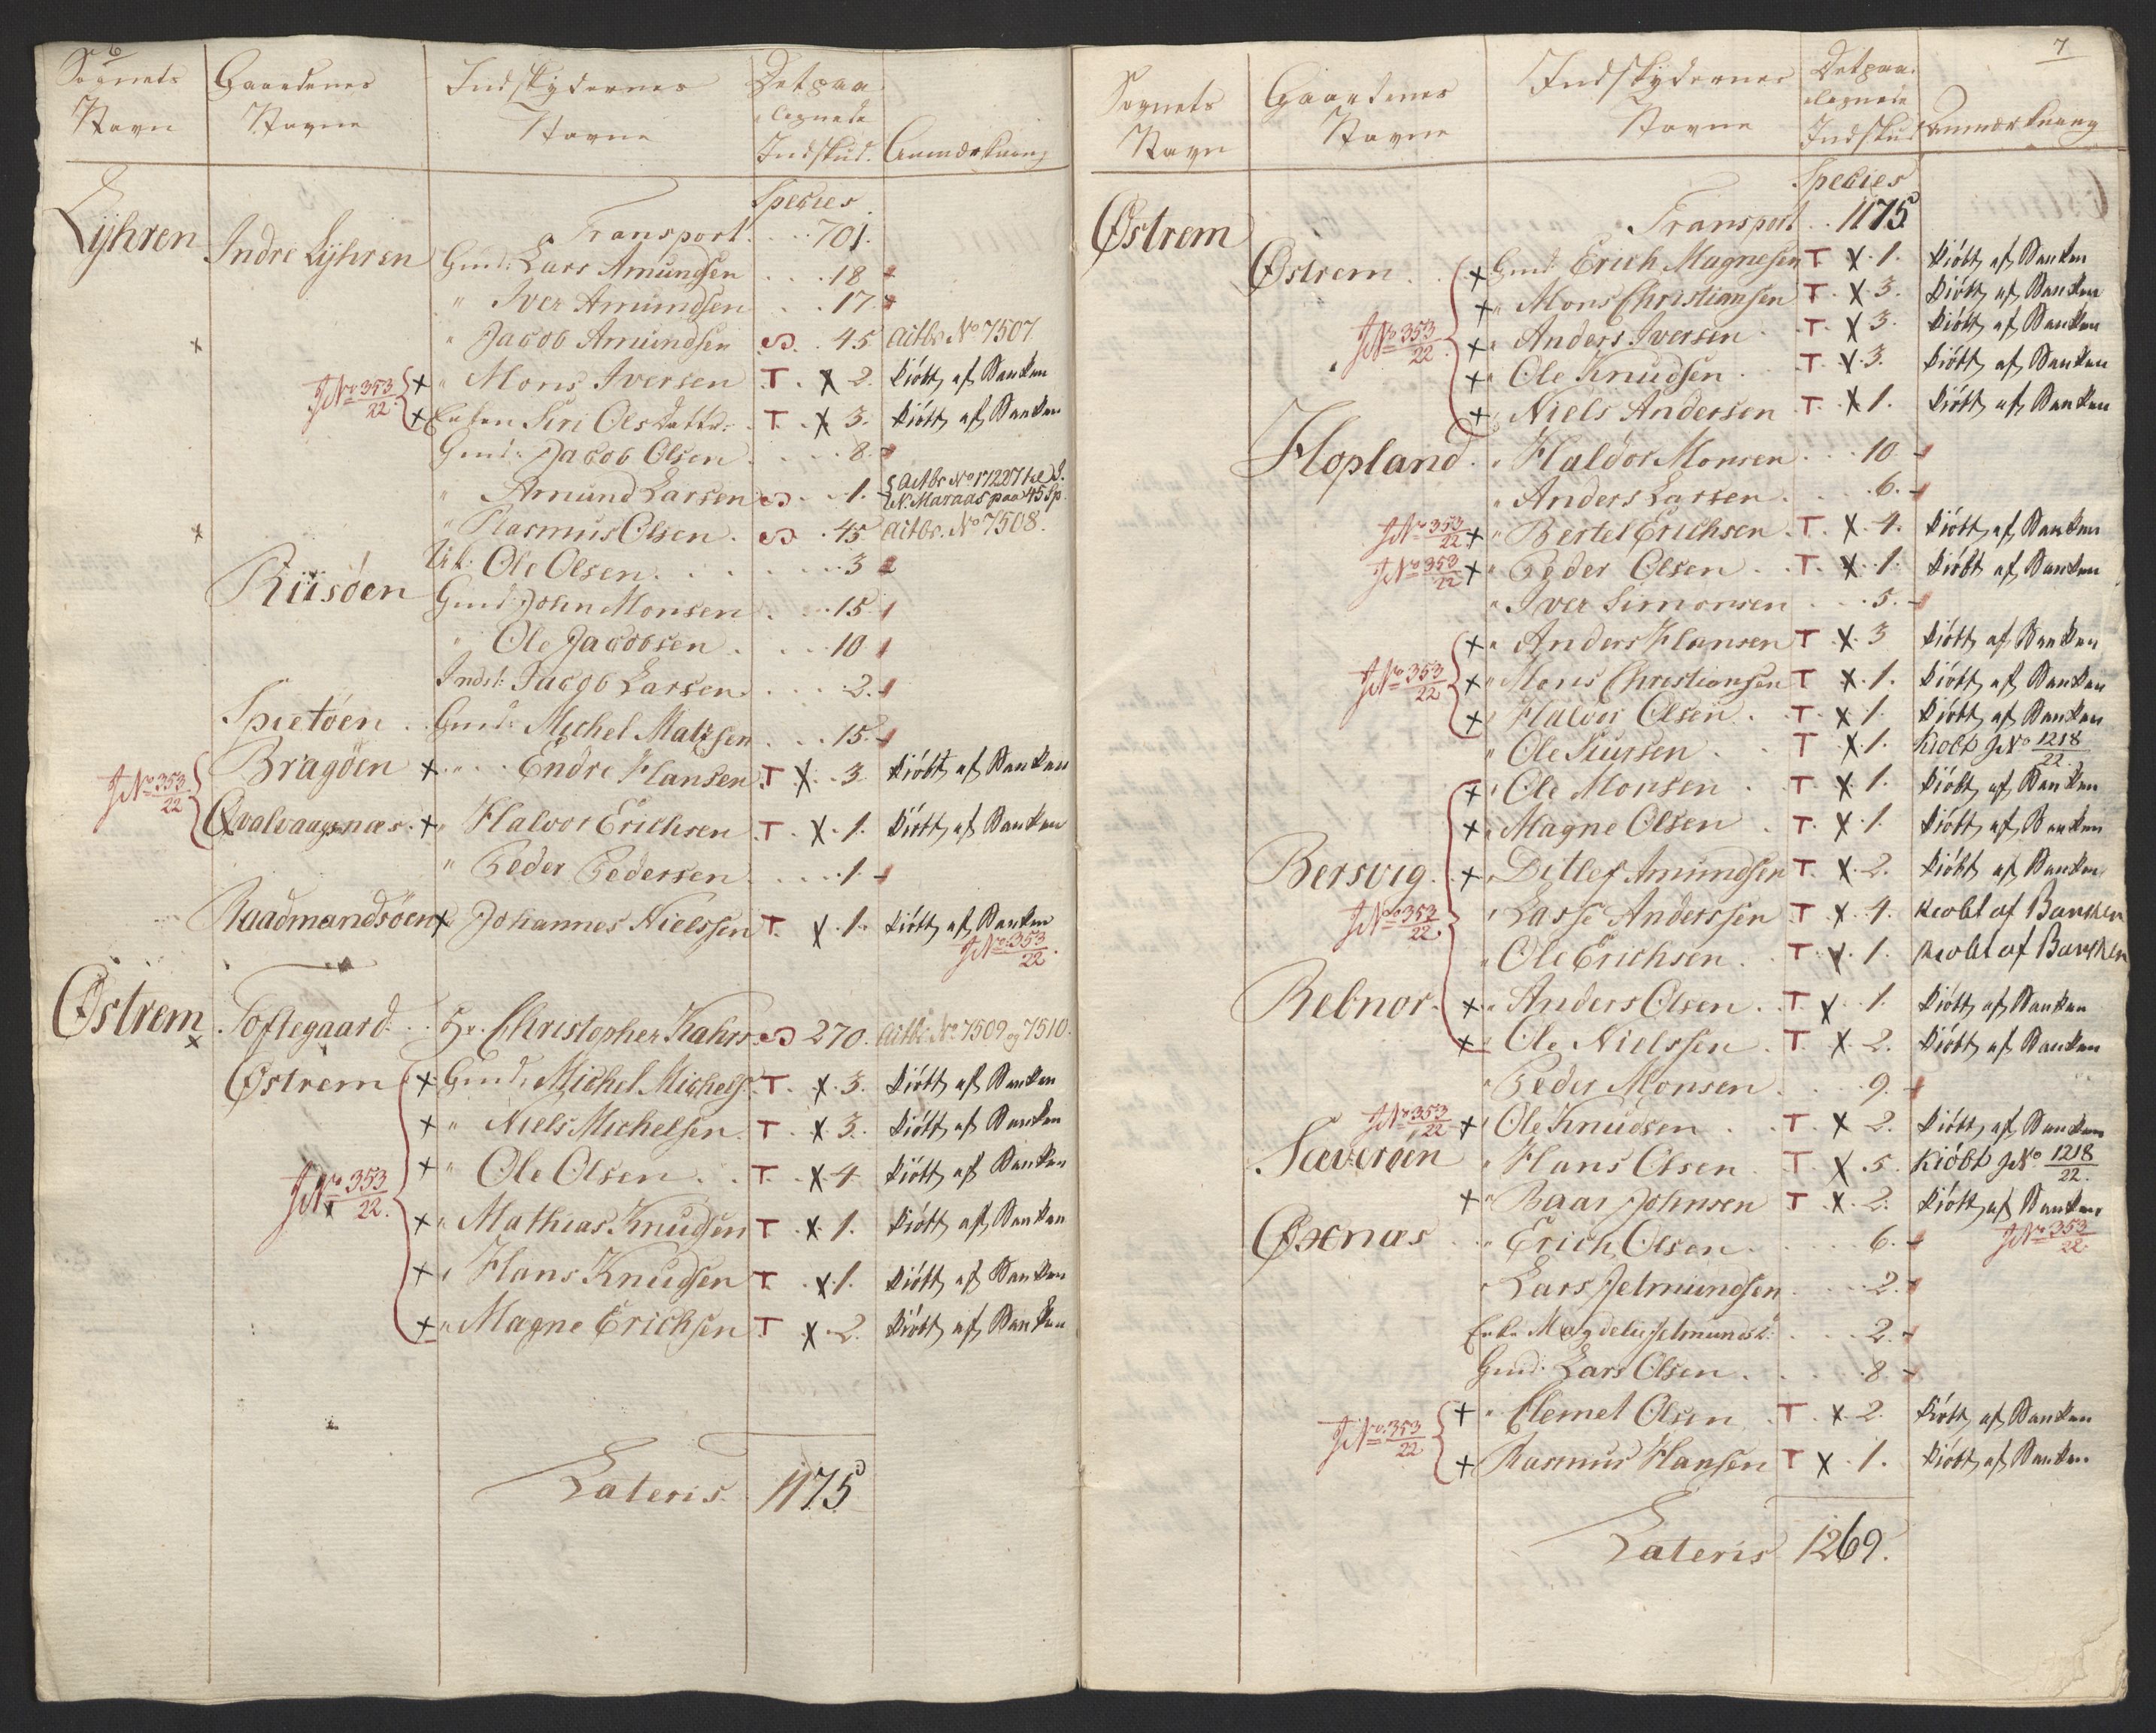 6
Sognets Navn | Gaardenes Navne | Indskydernes Navne | Det paalignede Indskud. | Anmærkning
Species
Transport. 701.
Lyhren | Indre Lyhren | Gmd: Lars Amundsen 18.
" Iver Amundsen 17.
× " Jacob Amundsen S. 45 actbr. No 7507
J No 353/22 { + " Mons Iversen T. X 2. kióbt af Banken
+ Enken Siri Olsdatter T. X 3. kióbt af Banken
Gmd: Jacob Olsen 8.
" Amund Larsen S. 1. { actbr No 17287
N. Maraas paa 45 Sp.
× " Rasmus Olsen. S. 45 actbr. No 7508.
Ole Olsen. 3
Riisöen | Gmd: John Monsen 15.
" Ole Jacobsen. 10
Indst: Jacob Larsen 2.
Spietöen | Gmd: Michel Matzsen 15.
J No 353/22 { Bragöen + " Endre Hansen T. X. 3. kióbt af Banken
Qvalvaagnæs. + " Halvor Erichsen T. X. 1. kióbt af Banken
" Peder Pedersen. 1.
Raadmandsöen + Johannes Nielssen T. X. 1. kióbt af Banken
J No 353/22.
Østrem × | Toftegaard | Hr. Christopher Kahrs S 270. actbr. No 7509 og 7510.
Østrem { + Gmd: Michel Michels: T. X. 3. kióbt af Banken
+ " Niels Michelsen. T. X. 3. kióbt af Banken
J No 353/22. + " Ole Olsen T. X 4. kióbt af Banken
+ " Mathias Knudsen T. X. 1. kióbt af Banken
+ " Hans Knudsen T. X. 1. kióbt af Banken
+ " Magne Erichsen T X. 2. kióbt af Banken
Lateris. 1175
7
Sognets Navn | Gaardenes Navne | Indskydernes Navne | Det paalignede Indskud | Anmærkning
Species
Transport. 1175
Østrem
Østrem. { + Gmd Erich Magnesen T X. 1. kióbt af Banken
+ " Mons Christiansen T. X. 3. kióbt af Banken
J No 353/22 + " Anders Iversen T. X 3. kióbt af Banken
+ " Ole Knudsen T. X. 3. kióbt af Banken
+ " Niels Andersen T. X 1. kióbt af Banken
Hopland. " Haldor Monsen 10.
" Anders Larsen. 6.
J No 353/22 + " Bertel Erichsen. T. X. 4. kióbt af Banken
J No 353/22 + " Peder Olsen T. X. 1. kióbt af Banken
" Iver Simonsen 5.
{ + " Anders Hansen T X. 3 kióbt af Banken
J No 353/22 + " Mons Christiansen T X. 1. kióbt af Banken
+ " Halvor Olsen. T. X 1. kióbt af Banken
" Ole Siursen T X. 1. kiöbt J No 1218/22.
{ + " Ole Monsen T X. 1. kióbt af Banken
+ " Magne Olsen T. X. 1. kióbt af Banken
Bersvig. + " Ditlef Amundsen T. X. 2. kióbt af Banken
J No 353/22. " Lasse Anderssen T X. 4. kiobt af Banken
" Ole Erichsen. T. X. 1. kiobt af Banken
Rebnor. + " Anders Olsen. T X. 1. kióbt af Banken
+ " Ole Nielssen. T. X. 2. kióbt af Banken
" Peder Monsen. 9.
J No 353/22 + " Ole Knudsen T X 2. kióbt af Banken
Sæveröen " Hans Olsen T. X. 5. Kióbt J No 1218/22.
+ " Baar Johnsen T X. 2. kióbt af Banken
J No 353/22.
Øxnæs " Erich Olsen. 6.
" Lars Jetmundsen 2.
Enke Magdeli Jetmundsd: 2.
Gmd. Lars Olsen. 8.
J No 353/22 { + " Clemet Olsen T. X. 2. kióbt af Banken
+ Rasmus Hansen T X. 1. kióbt af Banken
Lateris 1269.